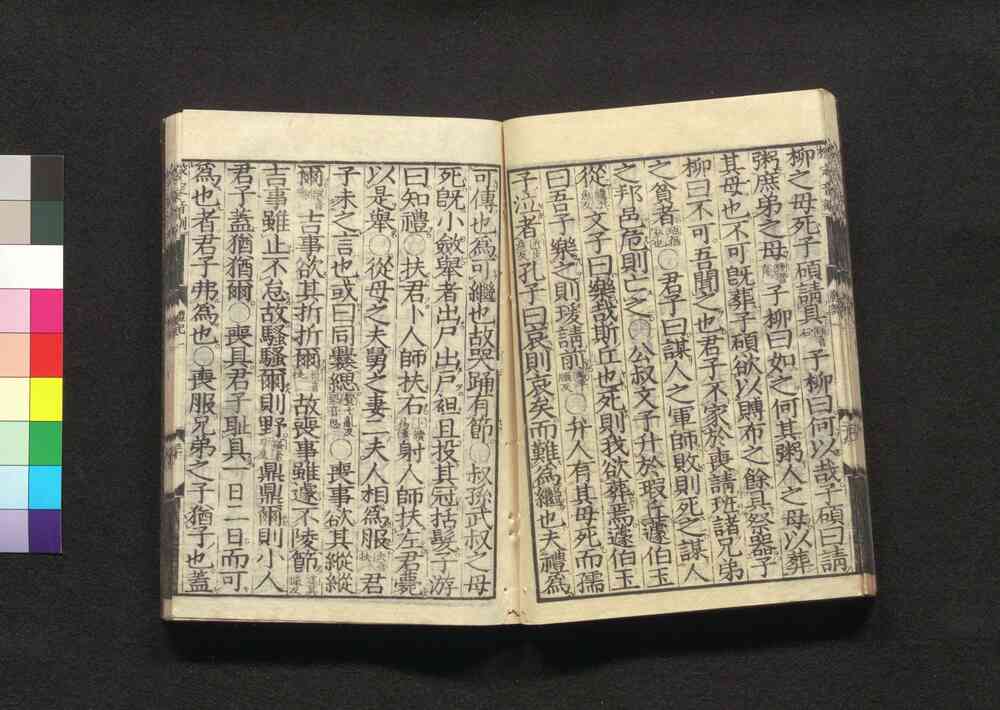 柳之母死子碩請具子柳曰何以哉子碩曰請
粥庶弟之母子柳曰如之何其粥人之母以葬
其母也不可既葬子碩欲以賻布之餘具祭器子
柳曰不可吾聞之也君子不家於喪請班諸兄弟
之貧者〇君子曰謀人之軍師敗則死之謀人
之邦邑危則亡之〇公叔文子升於瑕丘蘧伯玉
從文子曰樂哉斯丘也死則我欲葬焉蘧伯玉
曰吾子樂之則瑗請前〇弁人有其母死而孺
子泣者孔子曰哀則哀矣而難為繼也夫禮為
可傳也為可繼也故哭踊有節〇叔孫武叔之母
死既小斂舉者出戶出戶袒且投其冠括髮子游
曰知禮〇扶君卜人師扶右射人師扶左君薨
以是舉〇從母之夫舅之妻二夫人相為服君
子未之言也或曰同爨緦〇喪事欲其縱縱
爾吉事欲其折折爾故喪事雖遽不陵節
吉事雖止不怠故騷騷爾則野鼎鼎爾則小人
君子蓋猶猶爾〇喪具君子恥具一日二日而可
為也者君子弗為也〇喪服兄弟之子猶子也蓋